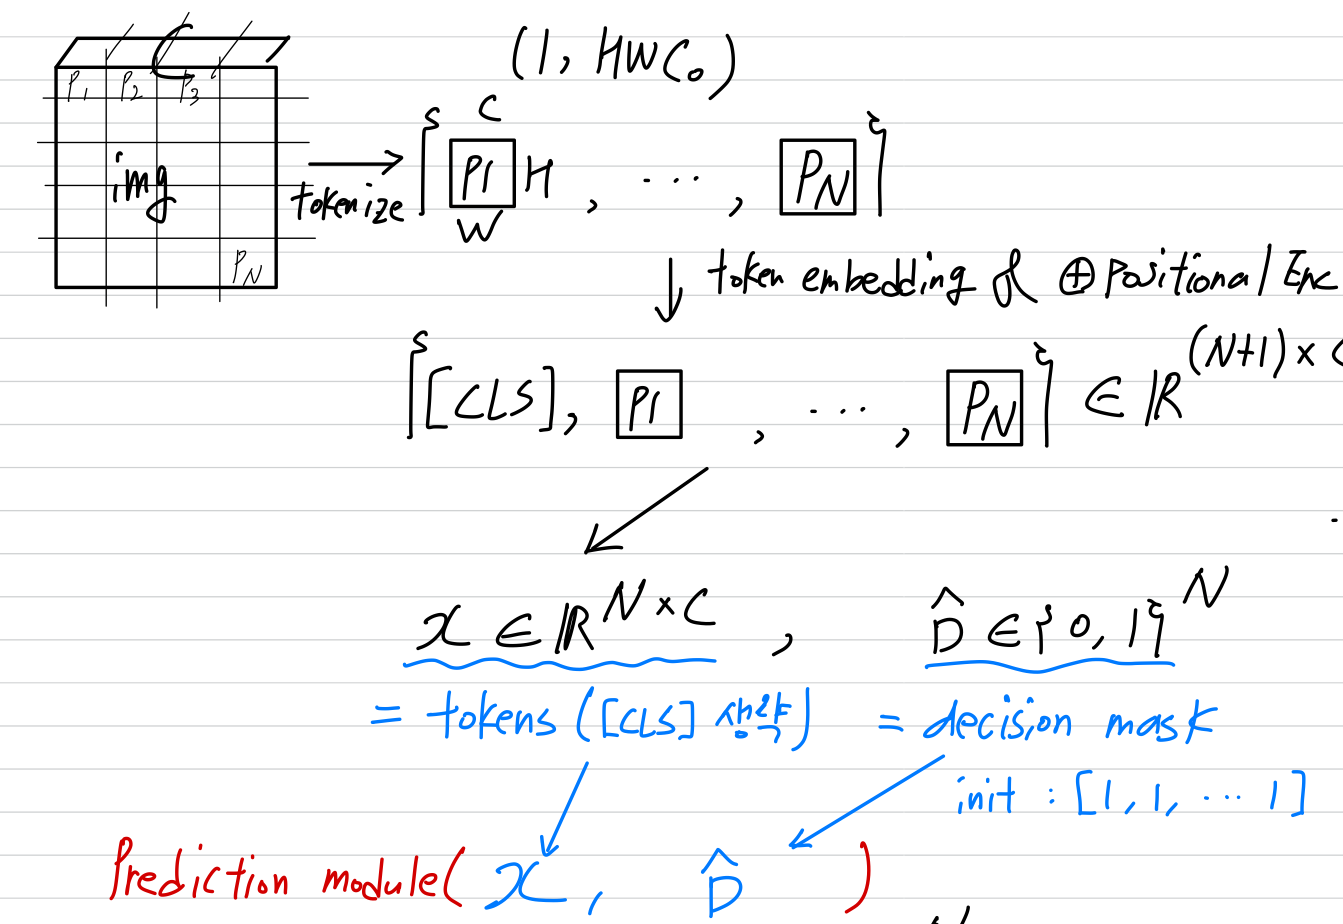 (1, HWC₀)
C
P1 P2 P3
img
PN
tokenize
{ P1 H , ... , PN }
C
W
↓ token embedding & ⊕ Positional Enc
{ [CLS], P1 , ... , PN } ∈ ℝ^(N+1)×C
x ∈ ℝ^N×C , D̂ ∈ {0, 1}^N
= tokens ([CLS] 생략) = decision mask
init : [1, 1, ... 1]
Prediction module( x , D̂ )